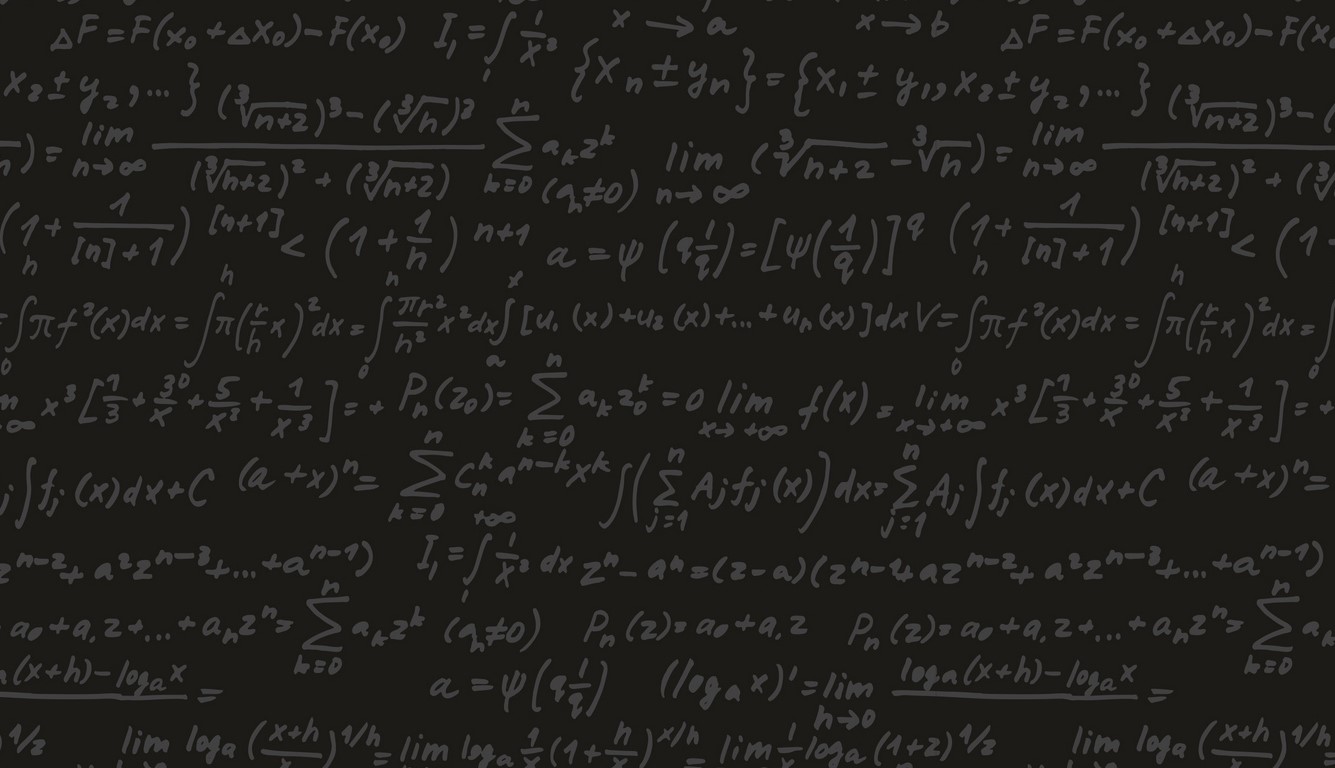 ΔF = F(x₀ + Δx₀) − F(x₀) I₁ = ∫ 1/x² x → a x → b ΔF = F(x₀ + Δx₀) − F(x
x₂ ± y₂, ... } {xₙ ± yₙ} = {x₁ ± y₁, x₂ ± y₂, ... }
) = lim n→∞ ((∛(n+2))³ − (∛n)³) / ((∛(n+2))² + (∛(n+2)) ∑ k=0 n aₖzᵏ (aₙ≠0) lim n→∞ (∛(n+2) − ∛n) = lim n→∞ ((∛(n+2))³ − ( / ((∛(n+2))² + (
(1 + 1/([n]+1)) [n+1] < (1 + 1/n) n+1 a = ψ(q 1/q) = [ψ(1/q)]^q (1 + 1/([n]+1)) [n+1] < (1
= ∫₀ʰ πf²(x)dx = ∫ʰ π(r/h x)²dx = ∫₀ʰ πr²/h² x²dx ∫ₐˣ [u₁(x)+u₂(x)+...+uₙ(x)]dx V = ∫₀ʰ πf²(x)dx = ∫ʰ π(r/h x)²dx =
x³[1/3 + 30/x + 5/x³ + 1/x³] = + Pₙ(z₀) = ∑ k=0 n aₖz₀ᵏ = 0 lim x→+∞ f(x) = lim x→+∞ x³[1/3 + 30/x + 5/x³ + 1/x³] = +
∫fⱼ(x)dx + C (a + x)ⁿ = ∑ k=0 n Cₙᵏ aⁿ⁻ᵏxᵏ ∫(∑ j=1 n Aⱼfⱼ(x))dx = ∑ j=1 n Aⱼ∫fⱼ(x)dx + C (a + x)ⁿ =
zⁿ⁻² + a²zⁿ⁻³ + ... + aⁿ⁻¹) I₁ = ∫₁^+∞ 1/x² dx zⁿ − aⁿ = (z−a)(zⁿ⁻¹ + azⁿ⁻² + a²zⁿ⁻³ + ... + aⁿ⁻¹)
a₀ + a₁z + ... + aₙzⁿ = ∑ k=0 n aₖzᵏ (aₙ≠0) Pₙ(z) = a₀ + a₁z Pₙ(z) = a₀ + a₁z + ... + aₙzⁿ = ∑ k=0 n
(x+h) − logₐx = a = ψ(q 1/q) (logₐx)' = lim h→0 (logₐ(x+h) − logₐx) =
1/2 lim logₐ((x+h)/x)^1/h = lim logₐ 1/x (1 + h/x)^x/h = lim 1/x logₐ(1+z)^1/2 lim logₐ((x+h)/x)^1/h